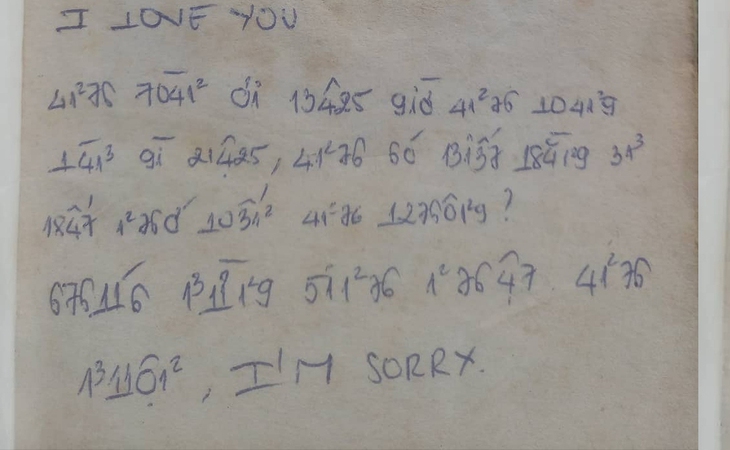 I LOVE YOU
41²76 704̄1² ơi 134̂25 giờ 41²76 1041²9
14̄1³ gi 214̣̂25, 41²76 6ó 13i3̂́7 184̄1²9 31³
184̂́7 1²76ớ 103̂1² 41²76 1276ô1²9?
676116́ 1³1119 5i1²76 1²764̣̂7 41²76
1³11ộ1², I'M SORRY.